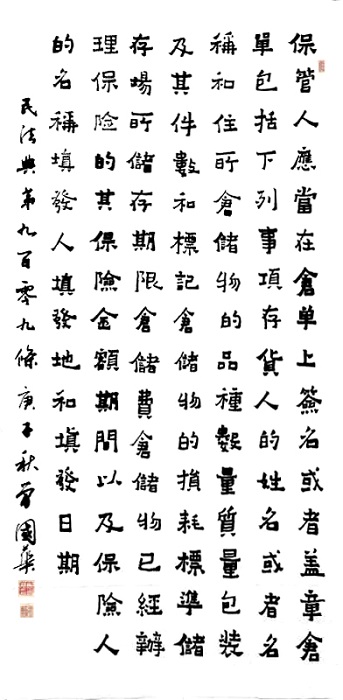 保管人應當在倉單上簽名或者盖章倉
單包括下列事項存貨人的姓名或者名
稱和住所倉儲物的品種數量質量包裝
及其件數和標記倉儲物的損耗標準儲
存場所儲存期限倉儲費倉儲物已經辦
理保险的其保險金額期間以及保險人
的名稱填發人填發地和填發日期
民法典第九百零九條庚子秋曾國